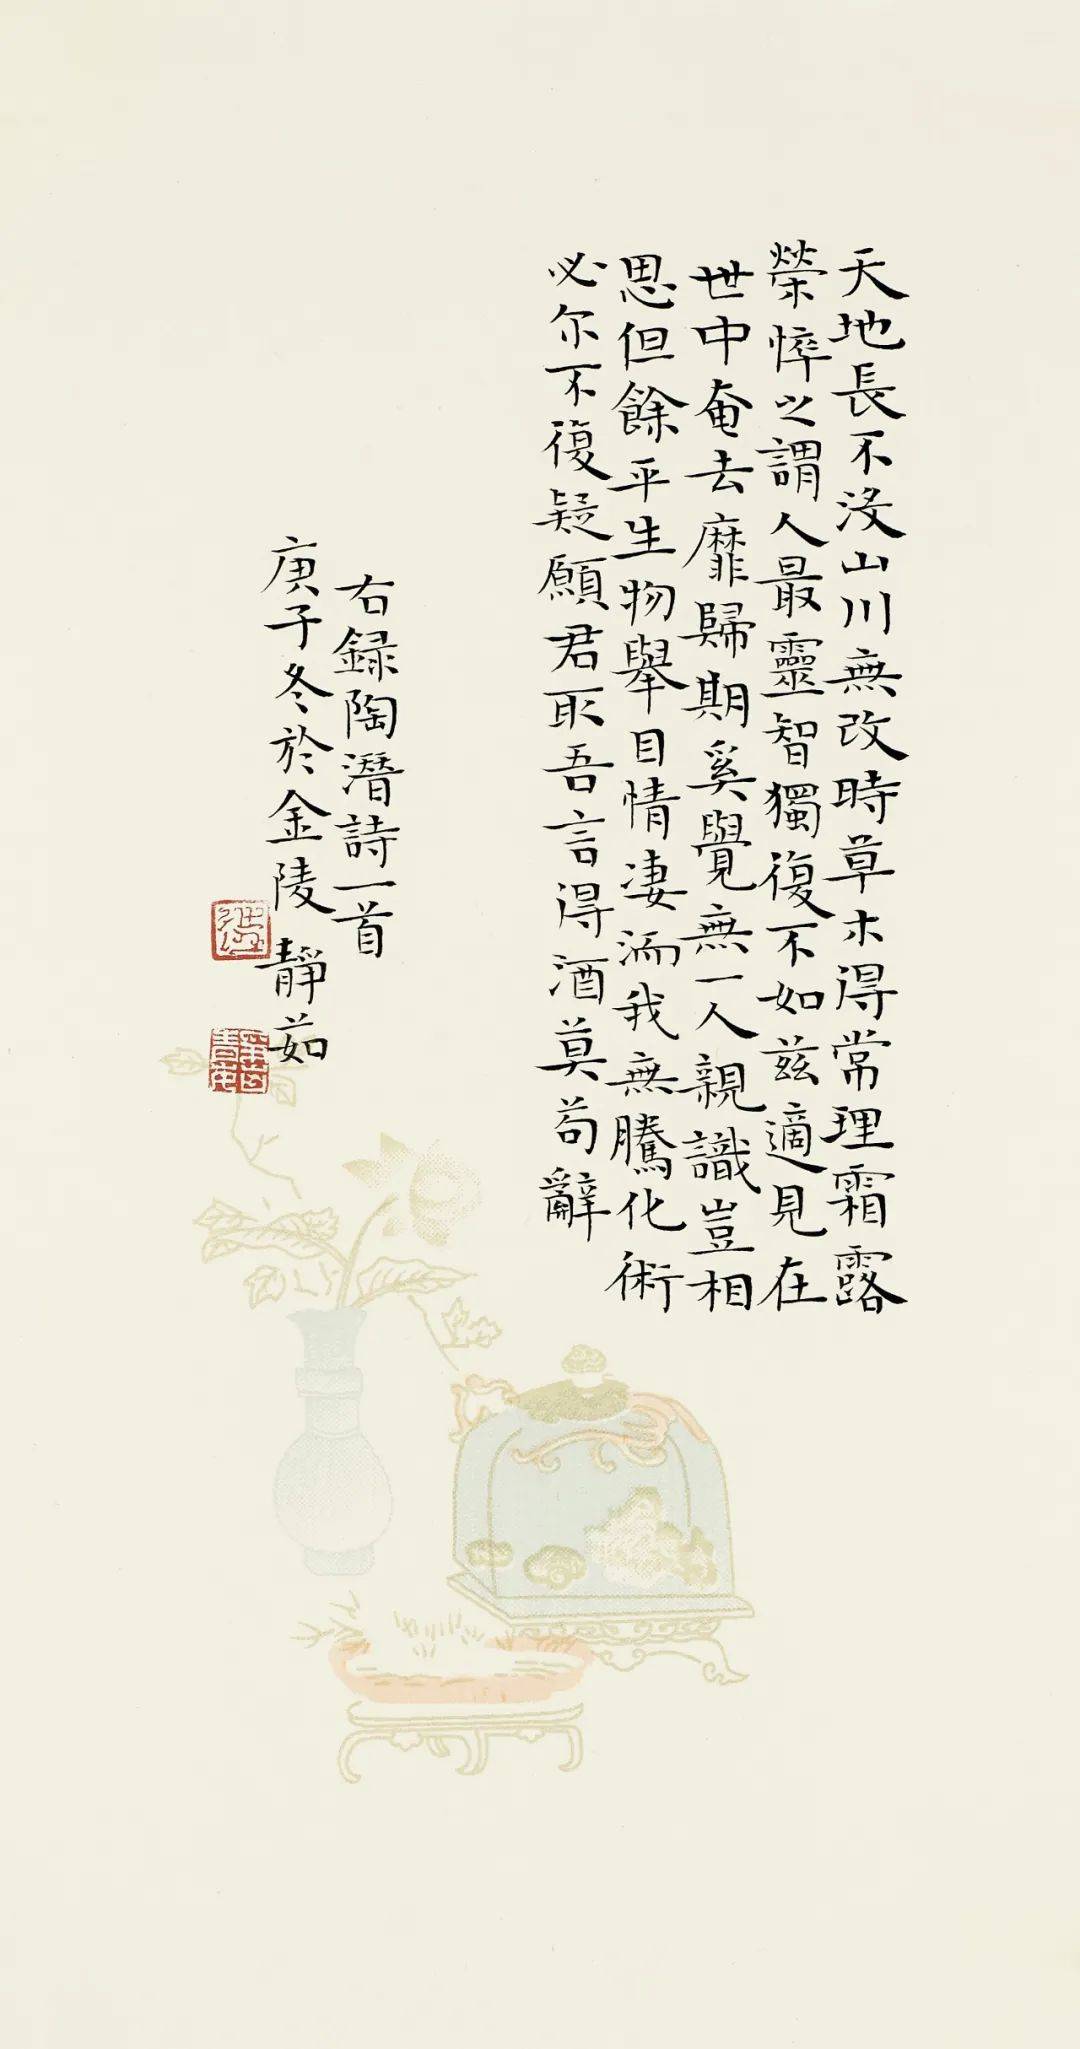 天地長不沒山川無改時草木得常理霜露
榮悴之謂人最靈智獨復不如茲適見在
世中奄去靡歸期奚覺無一人親識豈相
思但餘平生物舉目情凄洏我無騰化術
必尔不復疑願君取吾言得酒莫苟辭
右録陶潛詩一首
庚子冬於金陵 靜茹